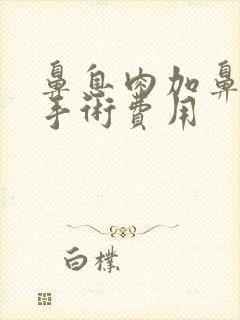 鼻息肉加鼻
手術費用
白樸